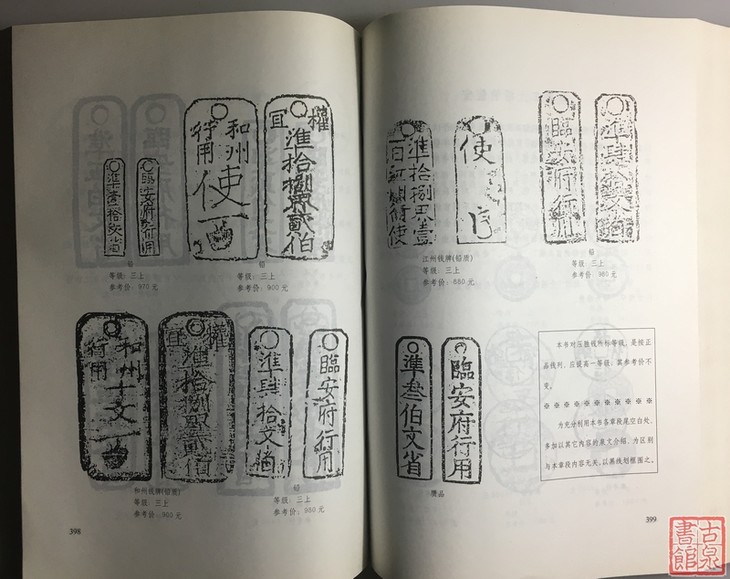 準壹拾文省
臨安府行用
和州
行用
使
權
宜
準拾捌界
貳伯
鉛
等级：三上
参考价：970 元
鉛
等级：三上
参考价：900 元
和州
行用
權
宜
準拾捌界貳伯
準肆拾文省
臨安府行用
和州钱牌(铅质)
等级：三上
参考价：900 元
鉛
等级：三上
参考价：980 元
398
準拾捌界壹
使
臨安府行用
準肆拾文省
江州钱牌(铅质)
等级：三上
参考价：880 元
鉛
等级：三上
参考价：980 元
準叁伯文省
臨安府行用
赝品
本书对应胜钱所标等级，是按正
品钱列，应提高一等级；其参考价不
变。
※ ※ ※ ※ ※ ※ ※ ※ ※ ※
为充分利用本书多章段尾空白处，
多加以其它内容的泉文介绍，为区别
与本章段内容无关，以黑线划框围之。
399
古泉
書館